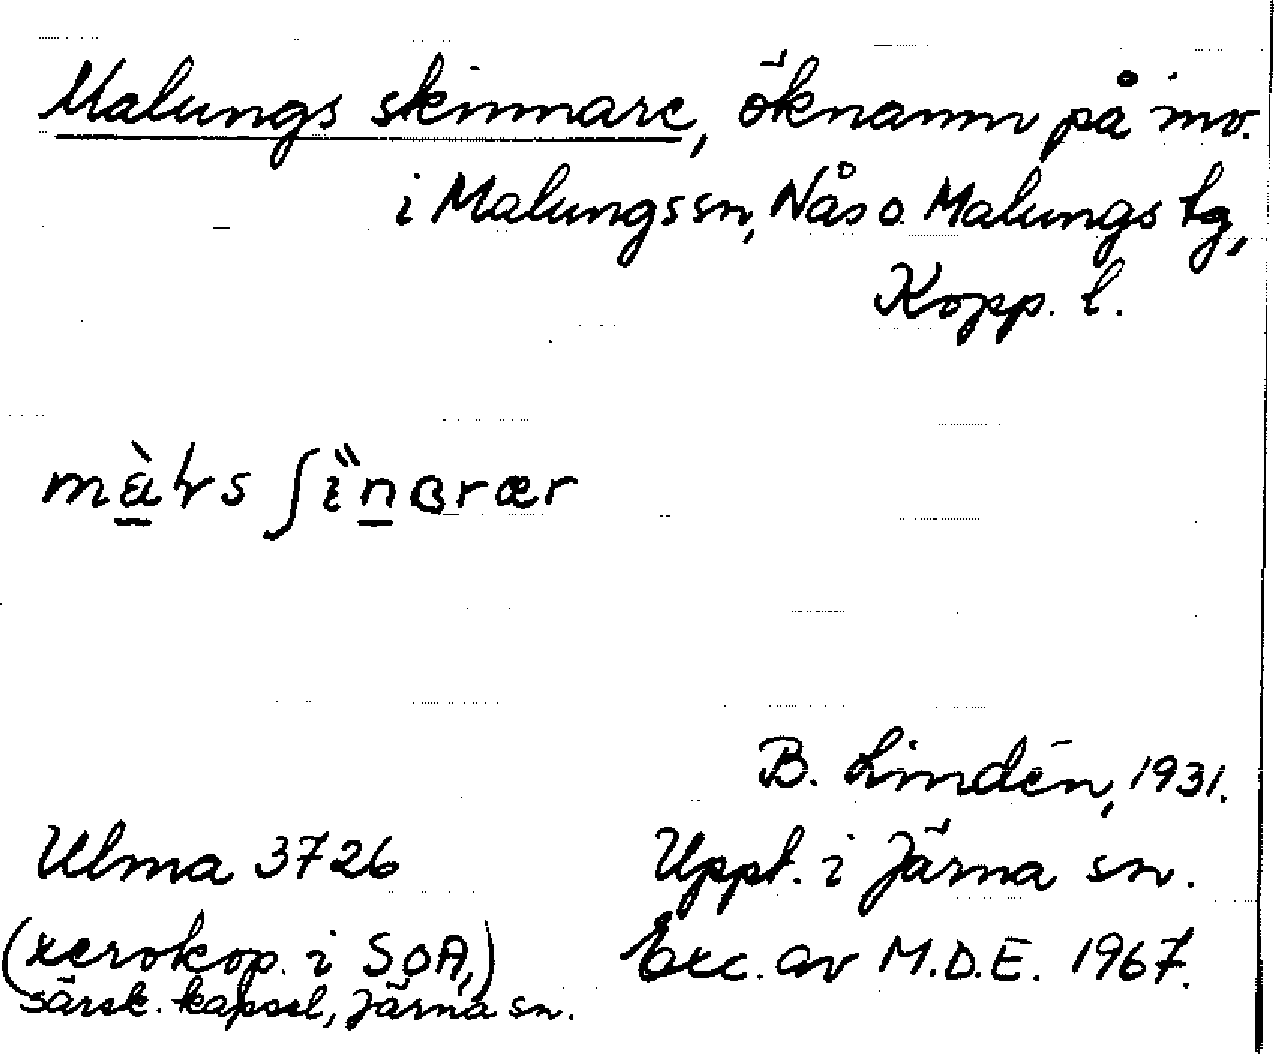 Malungs skinnare, öknamn på inv.
i Malungs sn, Nås o. Malungs tg,
Kopp. l.
B. Lindén, 1931.
Ulma 3726 Uppt. i Järna sn.
(xerokop. i SOA, Exc. av M.D.E. 1967.
särsk. kapsel, Järna sn.)